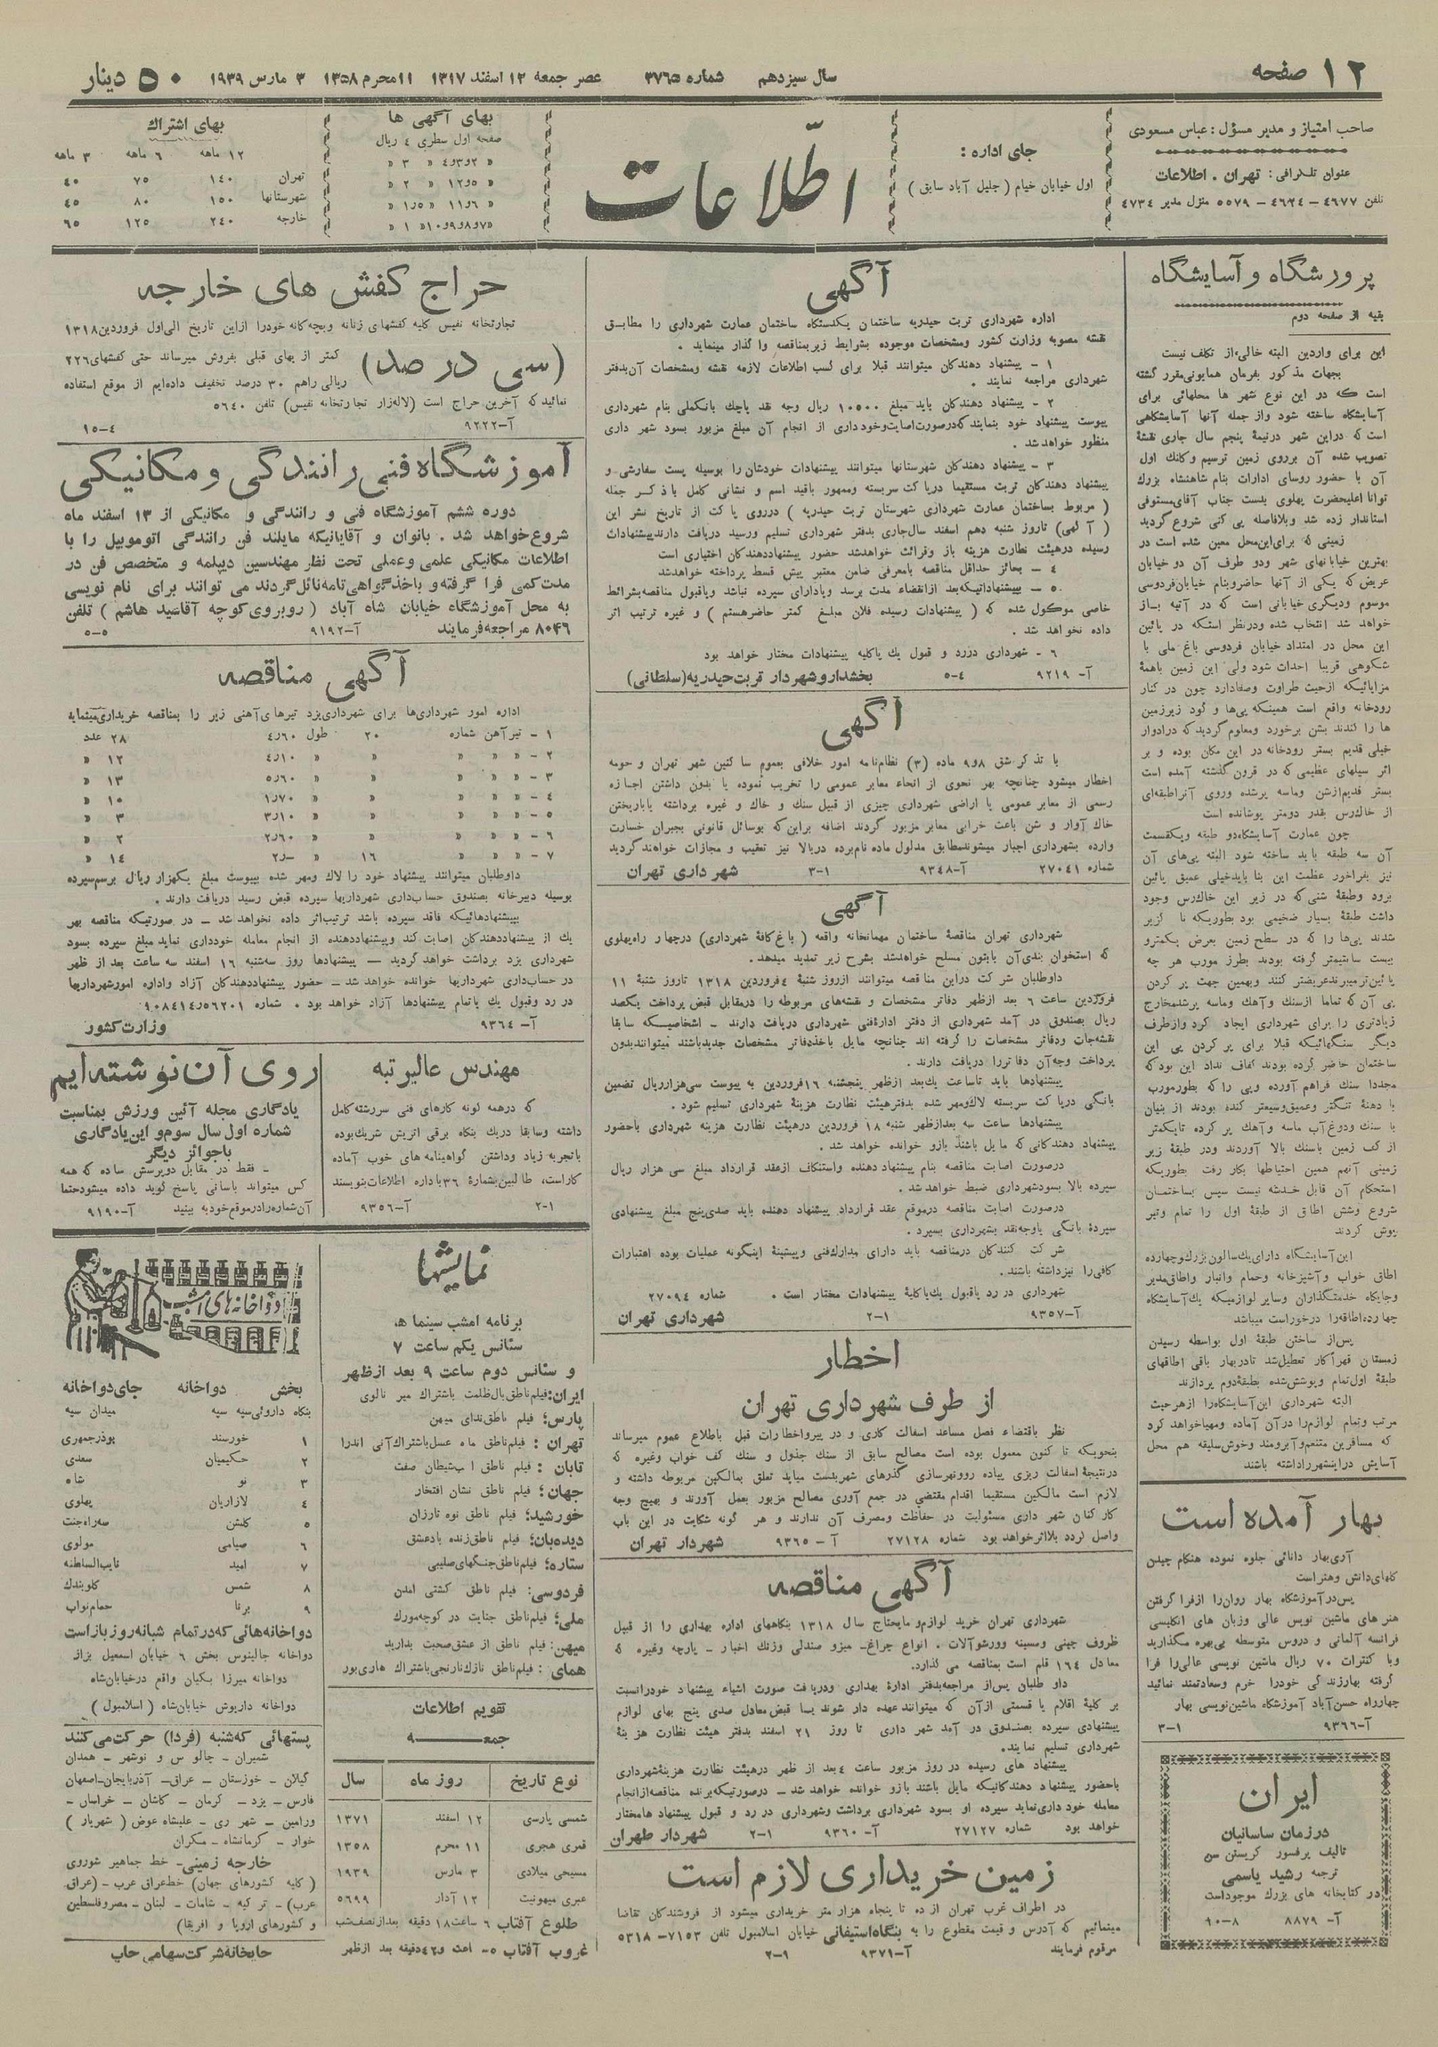 ۱۲ صفحه
سال سیزدهم شماره ۳۷۶۵ عصر جمعه ۱۲ اسفند ۱۳۱۷ ۱۱ محرم ۱۳۵۸ ۳ مارس ۱۹۳۹
۵۰ دینار
صاحب امتیاز و مدیر مسؤل : عباس مسعودی
عنوان تلگرافی : تهران . اطلاعات
تلفن ۴۶۷۷ – ۴۶۲۴ – ۵۵۷۹ منزل مدیر ۴۷۳۴
جای اداره :
اول خیابان خیام ( جلیل آباد سابق )
اطّلاعات
بهای آگهی ها
صفحه اول سطری ٤ ریال
بهای اشتراك
۱۲ ماهه ۶ ماهه ۳ ماهه
تهران ۱۴۰ ۷۵ ۴۰
شهرستانها ۱۵۰ ۸۰ ۴۵
خارجه ۲۴۰ ۱۲۵ ۶۵
پرورشگاه و آسایشگاه
بقیه از صفحه دوم
این برای واردین البته خالی از تکلف نیست
بجهات مذکور بفرمان همایونی مقرر گشته
است که دو این نوع شهر ها محلهائی برای
آسایشگاه ساخته شود واز جمله آنها آسایشگاهی
است که دراین شهر درنیمهٔ پنجم سال جاری نقشهٔ
تصویب شده آن برروی زمین ترسیم وکلنك اول
آن با حضور روسای ادارات بنام شاهنشاه بزرك
توانا اعلیحضرت پهلوی بدست جناب آقای مستوفی
استاندار زده شد وبلافاصله پی کنی شروع گردید
زمینی که برای این محل معین شده است در
بهترین خیابانهای شهر ودو طرف آن دو خیابان
عریض که یکی از آنها حاضر وبنام خیابان فردوسی
موسوم ودیگری خیابانی است که در آتیه بـاز
خواهد شد انتخاب شده ودرنظر استکه در پائین
این محل در امتداد خیابان فردوسی باغ ملی با
شکوهی قریبا احداث شود ولی این زمین باهمهٔ
مزایائیکه از حیث طراوت وصفادارد چون در کنار
رودخانه واقع است همینکه پی‌ها و گود زیرزمین
ها را کندند بشن برخورد ومعلوم گردید که درادوار
خیلی قدیم بستر رودخانه در این مکان بوده و بر
اثر سیلهای عظیمی که در قرون گذشته آمده است
بستر قدیم ازشن وماسه پرشده وروی آنراطبقه‌ای
از خاك رس بقدر دومتر پوشانده است
چون عمارت آسایشگاه دو طبقه ویکقسمت
آن سه طبقه باید ساخته شود البته پی‌های آن
نیز بفراخور عظمت این بنا بایدخیلی عمیق پائین
برود وطبقهٔ شنی که در زیر این خاك رس وجود
داشت طبقهٔ بسیار ضخیمی بود بطوریکه نا گزیر
شدند پی‌ها را که در سطح زمین بعرض یکمترو
بیست سانتیمتر گرفته بودند بطرز مورب هر چه
پائین ترمیبرند عریضتر کنند وبهمین جهت پر کردن
پی آن که تماما ازسنك وآهك وماسه پرشد مخارج
زیادتری را برای شهرداری ایجاد کرد وازطرف
دیگر سنگهائیکه قبلا برای پر کردن پی این
ساختمان حاضر کرده بودند کفاف نداد این بود که
مجددا سنك فراهم آورده وپی را که بطورمورب
با دهنهٔ تنگتر وعمیق وسیعتر کنده بودند از بنیان
با سنك ودوغ آب ماسه و آهك پر کرده تایکمتر
از کف زمین باسنك بالا آوردند ودر طبقهٔ زیر
زمینی آنهم همین احتیاطها بکار رفت بطوریکه
استحکام آن قابل خدشه نیست سپس بساختمـان
شروع وشش اطاق از طبقهٔ اول را تمام وتیر
پوش کردند
این آسایشگاه دارای یك سالون بزرك وچهارده
اطاق خواب و آشپزخانه وحمام وانبار واطاق مدیر
وجایگاه خدمتگذاران وسایر لوازمیکه یك آسایشگاه
چهارده اطاقه را درخوراست میباشد
پس از ساختن طبقهٔ اول بواسطه رسیدن
زمستان قهرا کار تعطیل شد تادر بهار باقی اطاقهای
طبقهٔ اول تمام وپوشش شده بطبقهٔ دوم پردازند
البته شهرداری این آسایشگاه را ازهرحیث
مرتب وتمام لوازم را در آن آماده ومهیا خواهد کرد
که مسافرین متنعم و آبرومند وخوش سلیقه هم محل
آسایش دراینشهر راداشته باشند
بهار آمده است
آری بهار دانائی جلوه نموده هنگام چیدن
گلهای دانش وهنر است
پس در آموزشگاه بهار روان را ازفرا گرفتن
هنر های ماشین نویسی عالی وزبان های انگلیسی
فرانسه آلمانی و دروس متوسطه بی بهره مگذارید
وبا کنترات ۷۰ ریال ماشین نویسی عالی را فرا
گرفته بهارزندگی خودرا خرم وسعادتمند نمائید
چهارراه حسن آباد آموزشگاه ماشین نویسی بهار
آ–۹۳۶۶ ۳-۱
ایران
در زمان ساسانیان
تالیف پرفسور کریستن سن
ترجمه رشید یاسمی
در کتابخانه های بزرك موجود است
آ- ۸۸۷۹ ۹۰-۸
آگهی
اداره شهرداری تربت حیدریه ساختمان یکدستگاه ساختمان عمارت شهرداری را مطابـق
نقشه مصوبه وزارت کشور ومشخصات موجوده بشرایط زیر بمناقصه وا گذار مینماید .
۱ – پیشنهاد دهندگان میتوانند قبلا برای کسب اطلاعات لازمه نقشه ومشخصات آن بدفتر
شهرداری مراجعه نمایند .
۲ – پیشنهاد دهندگان باید مبلغ ۱۰۵۰۰ ریال وجه نقد یاچك بانکملی بنام شهرداری
پیوست پیشنهاد خود بنمایند که درصورت اصابت وخود داری از انجام آن مبلغ مزبور بسود شهر داری
منظور خواهد شد .
۳ – پیشنهاد دهندگان شهرستانها میتوانند پیشنهادات خودشان را بوسیله پست سفارشی و
پیشنهاد دهندگان تربت مستقیما درپاکت سربسته وممهور باقید اسم و نشانی کامل باذکر جمله
( مربوط بساختمان عمارت شهرداری شهرستان تربت حیدریه ) درروی پاکت از تاریخ نشر این
( آگهی) تاروز شنبه دهم اسفند سال جاری بدفتر شهرداری تسلیم ورسید دریافت دارند پیشنهادات
رسیده درهیئت نظارت هزینه باز وقرائت خواهد شد حضور پیشنهاد دهندگان اختیاری است
۴ – بحائز حداقل مناقصه بامعرفی ضامن معتبر پیش قسط پرداخته خواهد شد
۵ – بپیشنهاداتیکه بعد ازانقضاء مدت برسد ویادارای سپرده نباشد ویاقبول مناقصه بشرائط
خاصی موکول شده که ( پیشنهادات رسیده فلان مبلـغ کمتر حاضر هستم ) و غیره ترتیب اثر
داده نخواهد شد .
۶ – شهرداری دررد و قبول یك یاکلیه پیشنهادات مختار خواهد بود
آ- ۹۲۱۹ ۵-۴ بخشدار و شهردار تربت حیدریه (سلطانی)
آگهی
با تذکر شق ۸و۹ ماده (۳) نظامنامه امور خلافی بعموم ساکنین شهر تهران و حومه
اخطار میشود چنانچه بهر نحوی از انحاء معابر عمومی را تخریب نموده یا بدون داشتن اجـازه
رسمی از معابر عمومی یا اراضی شهرداری چیزی از قبیل سنك و خاك و غیره برداشته یاباریختن
خاك آوار و شن باعث خرابی معابر مزبور گردند اضافه براین که بوسائل قانونی بجبران خسارت
وارده بشهرداری اجبار میشوند مطابق مدلول ماده نامبرده دربالا نیز تعقیب و مجازات خواهند گردید
شماره ۲۷۰۴۱ آ–۹۳۴۸ ۳-۱ شهرداری تهران
آگهی
شهرداری تهران مناقصهٔ ساختمان مهمانخانه واقعه ( باغ کافهٔ شهرداری) در چهار راه پهلوی
که استخوان بندی آن بابتون مسلح خواهد شد بشرح زیر تمدید میدهد.
داوطلبان شرکت دراین مناقصه میتوانند ازروز شنبهٔ ۴ فروردین ۱۳۱۸ تاروز شنبهٔ ۱۱
فروردین ساعت ۶ بعد ازظهر دفاتر مشخصات و نقشه‌های مربوطه را درمقابل قبض پرداخت یکصد
ریال بصندوق در آمد شهرداری از دفتر ادارهٔ فنی شهرداری دریافت دارند – اشخاصیـکه سابقا
نقشه‌جات ودفاتر مشخصات را گرفته اند چنانچه مایل باخذ دفاتر مشخصات جدید باشند میتوانند بدون
پرداخت وجه آن دفاتر را دریافت دارند .
پیشنهادها باید تاساعت یك بعد ازظهر پنجشنبه ۱۶ فروردین به پیوست سی هزار ریال تضمین
بانکی درپاکت سربسته لاك ومهر شده بدفتر هیئت نظارت هزینهٔ شهرداری تسلیم شود .
پیشنهادها ساعت سه بعد ازظهر شنبه ۱۸ فروردین درهیئت نظارت هزینه شهرداری باحضور
پیشنهاد دهندگانی که مایل باشند بازو خوانده خواهد شد .
درصورت اصابت مناقصه بنام پیشنهاد دهنده واستنکاف ازعقد قرارداد مبلغ سی هزار ریال
سپرده بالا بسود شهرداری ضبط خواهد شد .
درصورت اصابت مناقصه درموقع عقد قرارداد پیشنهاد دهنده باید صدی پنج مبلغ پیشنهادی
سپردهٔ بانکی یاوجه نقد بشهرداری بسپرد .
شرکت کنندگان درمناقصه باید دارای مدارك فنی وپیشینهٔ اینگونه عملیات بوده اعتبارات
کافی را نیز داشته باشند .
شهرداری در رد یاقبول یك یاکلیهٔ پیشنهادات مختار است . شماره ۲۷۰۹۴
آ–۹۳۵۷ ۲-۱ شهرداری تهران
اخطار
از طرف شهرداری تهران
نظر باقتضاء فصل مساعد اسفالت کاری و در پیرو اخطارات قبل باطلاع عموم میرساند
بنحویکه تا کنون معمول بوده است مصالح سابق از سنك جدول و سنك کف خواب وغیره که
درنتیجهٔ اسفالت ریزی پیاده روو نهرسازی گذرهای شهر بدست میاید تعلق بمالکین مربوطه داشته و
لازم است مالکین مستقیما اقدام مقتضی در جمع آوری مصالح مزبور بعمل آورند و بهیچ وجه
کارکنان شهرداری مسئولیت در حفاظت ومصرف آن ندارند و هر گونه شکایت در این باب
واصل گردد بلااثر خواهد بود شماره ۲۷۱۲۸ آ – ۹۳۶۵ شهردار تهران
آگهی مناقصه
شهرداری تهران خرید لوازم و مایحتاج سال ۱۳۱۸ بنگاههای اداره بهداری را از قبیل
ظروف چینی ومسینه وورشو آلات . انواع چراغ- میزو صندلی وزنك اخبار – پارچه وغیره که
معادل ۱۶۴ قلم است بمناقصه می گذارد.
داو طلبان پس از مراجعه بدفتر ادارهٔ بهداری ودریافت صورت اشیاء پیشنهاد خود رانسبت
بر کلیهٔ اقلام یا قسمتی از آن که میتوانند عهده دار شوند بـا قبض معادل صدی پنج بهای لوازم
پیشنهادی سپرده بصنـدوق در آمد شهر داری تا روز ۲۱ اسفند بدفتر هیئت نظارت هزینهٔ
شهرداری تسلیم نمایند.
پیشنهاد های رسیده در روز مزبور ساعت ۴ بعد از ظهر درهیئت نظارت هزینهٔ شهرداری
باحضور پیشنهاد دهندگانیکه مایل باشند بازو خوانده خواهد شد – درصورتیکه برنده مناقصه ازانجام
معامله خود داری نماید سپرده او بسود شهرداری برداشت وشهرداری در رد و قبول پیشنهاد ها مختار
خواهد بود شماره ۲۷۱۲۷ آ- ۹۳۶۰ ۲-۱ شهردار طهران
زمین خریداری لازم است
در اطراف غرب تهران از ده تا پنجاه هزار متر خریداری میشود از فروشندگان تقاضا
مینمائیم که آدرس و قیمت مقطوع را به بنگاه استیفانی خیابان اسلامبول تلفن ۷۱۵۳–۵۳۱۸
مرقوم فرمایند آ–۹۳۷۱ ۲-۱
حراج کفش های خارجه
تجارتخانه نفیس کلیه کفشهای زنانه وبچه گانه خودرا ازاین تاریخ الی اول فروردین ۱۳۱۸
(سی در صد) کمتر از بهای قبلی بفروش میرساند حتی کفشهای ۲۲۶
ریالی راهم ۳۰ درصد تخفیف داده‌ایم از موقع استفاده
نمائید که آخرین حراج است (لاله‌زار تجارتخانه نفیس) تلفن ۵۶۴۰
آ–۹۲۲۲ ۱۵-۴
آموزشگاه فنی رانندگی و مکانیکی
دوره ششم آموزشگاه فنی و رانندگی و مکانیکی از ۱۳ اسفند ماه
شروع خواهد شد . بانوان و آقایانیکه مایلند فن رانندگی اتوموبیل را با
اطلاعات مکانیکی علمی وعملی تحت نظر مهندسین دیپلمه و متخصص فن در
مدت کمی فرا گرفته و باخذ گواهی نامه نائل گردند می توانند برای نام نویسی
به محل آموزشگاه خیابان شاه آباد ( روبروی کوچه آقا سید هاشم ) تلفن
۸۰۴۶ مراجعه فرمایند آ–۹۱۹۲ ۵-۵
آگهی مناقصه
اداره امور شهرداری‌ها برای شهرداری یزد تیرهای آهنی زیر را بمناقصه خریداری مینماید
۱ – تیر آهن شماره ۲۰ طول ۴٫۶۰ ۲۸ عدد
۲ – « « « « ۴٫۱۰ ۱۲ «
۳ – « « « « ۵٫۶۰ ۱۳ «
۴ – « « « « ۱٫۷۰ ۱۰ «
۵ – « « « « ۳٫۱۰ ۳ «
۶ – « « « « ۲٫۶۰ ۲ «
۷ – « « ۱۶ « ۲٫– ۱۴ «
داوطلبان میتوانند پیشنهاد خود را لاك ومهر شده بپیوست مبلغ یکهزار ریال برسم سپرده
بوسیله دبیرخانه بصندوق حسابداری شهرداریها سپرده قبض رسید دریافت دارند .
بپیشنهادهائیکه فاقد سپرده باشد ترتیب اثر داده نخواهد شد – در صورتیکه مناقصه بهر
یك از پیشنهاد دهندگان اصابت کند وپیشنهاد دهنده از انجام معامله خودداری نماید مبلغ سپرده بسود
شهرداری یزد برداشت خواهد گردید – پیشنهادها روز سه‌شنبه ۱۶ اسفند سه ساعت بعد از ظهر
در حسابداری شهرداریها خوانده خواهد شد – حضور پیشنهاد دهندگان آزاد واداره امور شهرداریها
در رد وقبول یك یاتمام پیشنهادها آزاد خواهد بود .
آ– ۹۳۶۴ وزارت کشور
مهندس عالیرتبه
که درهمه گونه کارهای فنی سررشته کامل
داشته وسابقا دریك بنگاه برقی اتریش شریك بوده
باتجربه زیاد وداشتن گواهینامه های خوب آماده
کاراست، طالبین بشمارهٔ ۳۶ باداره اطلاعات بنویسند
آ–۹۳۵۶ ۲-۱
روی آن نوشته‌ایم
یادگاری مجله آئین ورزش بمناسبت
شماره اول سال سوم و این یادگاری
باجوائز دیگر
– فقط در مقابل دوپرسش ساده که همه
کس میتواند باسانی پاسخ گوید داده میشود حتما
آن شماره را در موقع خود به بینید آ–۹۱۹۰
نمایشها
برنامه امشب سینما ها
سئانس یکم ساعت ۷
و سئانس دوم ساعت ۹ بعد از ظهر
ایران: فیلم ناطق بال ظلمت باشتراك میر نالوی
پارس: فیلم ناطق ندای میهن
تهران : فیلم ناطق ماه عسل باشتراك آنی اندرا
تابان : فیلم ناطق اسب شیطان صفت
جهان: فیلم ناطق نشان افتخار
خورشید: فیلم ناطق نوه تارزان
دیده‌بان: فیلم ناطق زنده باد عشق
ستاره: فیلم ناطق جنگهای صلیبی
فردوسی: فیلم ناطق کشتی امدن
ملی: فیلم ناطق جنایت در کوچه مورك
میهن: فیلم ناطق از عشق صحبت بدارید
همای: فیلم ناطق نازك نارنجی باشتراك هاری بور
تقویم اطلاعات
جمعه ۹
نوع تاریخ روز ماه سال
شمسی پارسی ۱۲ اسفند ۱۳۷۱
قمری هجری ۱۱ محرم ۱۳۵۸
مسیحی میلادی ۳ مارس ۱۹۳۹
عبری میهونیت ۱۲ آدار ۵۶۹۹
طلوع آفتاب ۶ ساعت ۱۸ دقیقه بعد از نصف شب
غروب آفتاب ۵ ساعت و ۴۲ دقیقه بعد از ظهر
دواخانه‌های امشب
بخش دواخانه جای دواخانه
بنگاه داروئی سپه سپه میدان سپه
۱ خورسند بوذرجمهری
۲ حکیمیان سعدی
۳ نو شاه
۴ لازاریان پهلوی
۵ گلشن سه‌راه جنت
۶ صیامی مولوی
۷ امید نایب السلطنه
۸ شمس گلوبندك
۹ برنا حمام نواب
دواخانه هائی که در تمام شبانه روز باز است
دواخانه جالینوس بخش ۶ خیابان اسمعیل بزاز
دواخانه میرزا یکیان واقع درخیابان شاه
دواخانه داریوش خیابان شاه ( اسلامبول )
پستهائی که شنبه (فردا) حرکت می کنند
شمیران – چالوس و نوشهر – همدان
گیلان – خوزستان – عراق– آذربایجان–اصفهان
فارس – یزد – کرمان – کاشان – خراسان –
ورامین – شهر ری – علیشاه عوض ( شهریار )
خوار – کرمانشاه – مکران
خارجه زمینی– خط جماهیر شوروی
( کلیه کشورهای جهان) خط عراق عرب – (عراق
عرب) – ترکیه – شامات – لبنان – مصر و فلسطین
و کشورهای اروپا و افریقا)
چاپخانه شرکت سهامی چاپ